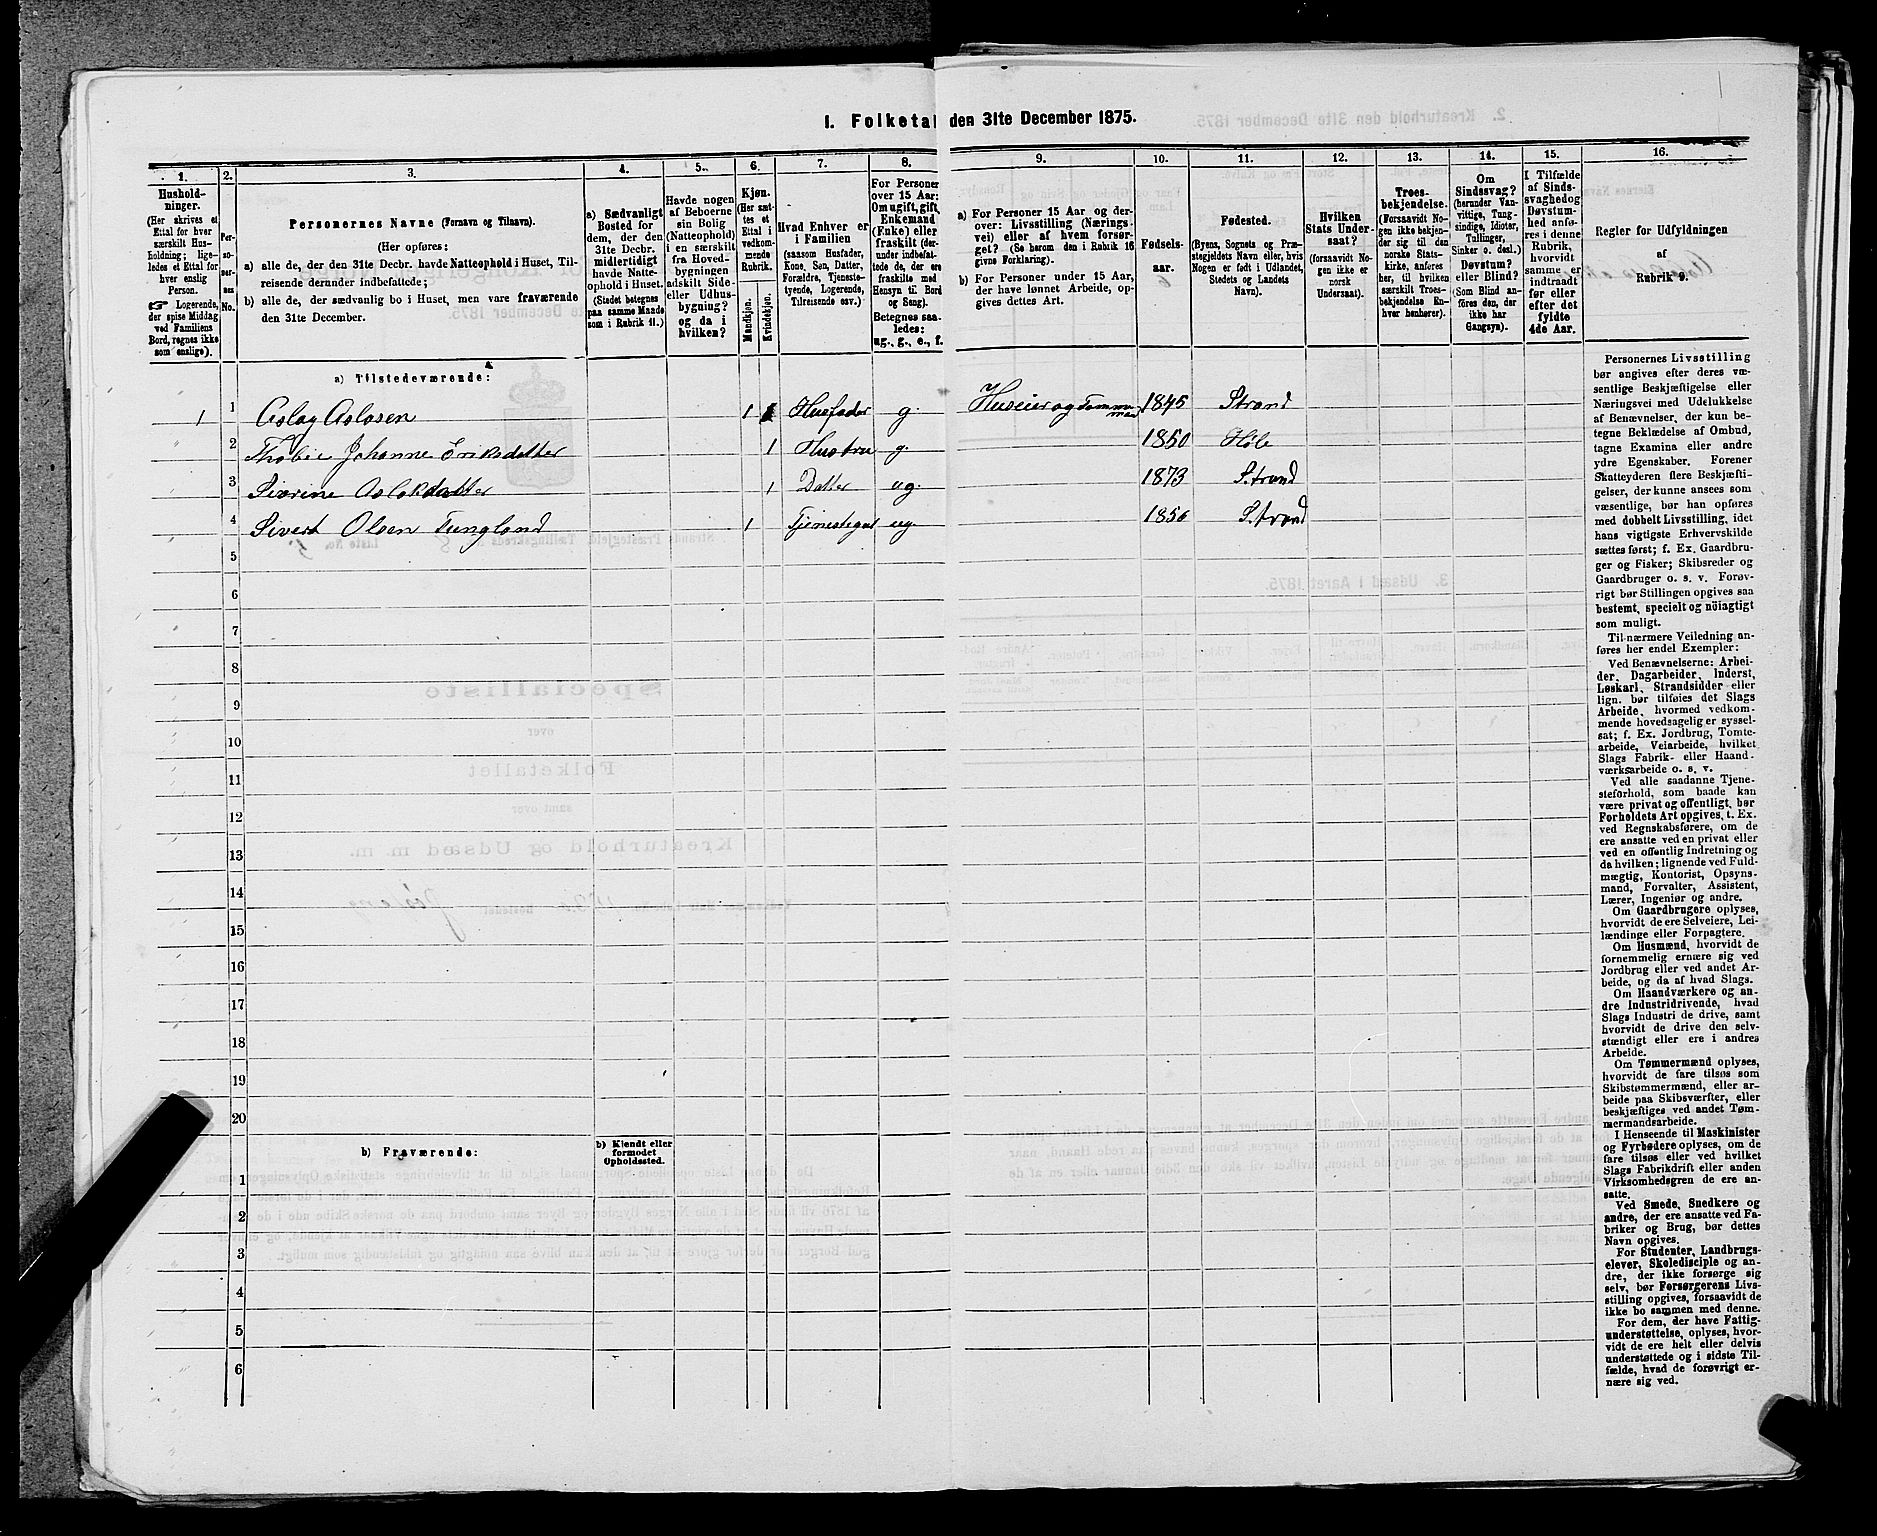 I. Folketal den 31te December 1875.
1.
2.
3.
4.
5.
6.
7.
8.
9.
10.
11.
12.
13.
14.
15.
16.
Hushold-
ninger.
(Her skrives et
Ettal for hver
særskilt Hus-
holdning; lige-
ledes et Ettal for
hver enslig
Person.
☞ Logerende,
der spise Middag
ved Familiens
Bord, regnes ikke
som enslige).
Per-
so-
ner-
nes
No.
Personernes Navne (Fornavn og Tilnavn).
(Her opføres:
a) alle de, der den 31te Decbr. havde Natteophold i Huset, Til-
reisende derunder indbefattede;
b) alle de, der sædvanlig bo i Huset, men vare fraværende
den 31te December.
a) Sædvanligt
Bosted for
dem, der den
31te Decbr.
midlertidigt
havde Natte-
ophold i Huset.
(Stedet betegnes
paa samme Maade
som i Rubrik 11.)
Havde nogen
af Beboerne
sin Bolig
(Natteophold)
i en særskilt
fra Hoved-
bygningen
adskilt Side-
eller Udhus-
bygning?
og da i
hvilken?
Kjøn.
(Her sæt-
tes et
Ettal i
vedkom-
mende
Rubrik.
Mandkjøn.
Kvindekjøn.
Hvad Enhver er
i Familien
(saasom Husfader,
Kone, Søn, Datter,
Forældre, Tjeneste-
tyende, Logerende,
Tilreisende osv.)
For Personer
over 15 Aar:
Om ugift, gift,
Enkemand
(Enke) eller
fraskilt (der-
under indbefat-
tede de, der ere
fraskilte med
Hensyn til Bord
og Seng).
Betegnes saa-
ledes:
ug., g., e., f.
a) For Personer 15 Aar og der-
over: Livsstilling (Nærings-
vei) eller af hvem forsør-
get? (Se herom den i Rubrik 16
givne Forklaring).
b) For Personer under 15 Aar,
der have lønnet Arbeide, op-
gives dettes Art.
Fødsels-
aar.
Fødested.
(Byens, Sognets og Præ-
stegjeldets Navn eller, hvis
Nogen er født i Udlandet,
Stedets og Landets
Navn).
Hvilken
Stats Under-
saat?
(forsaavidt No-
gen ikke er
norsk
Undersaat).
Troes-
bekjendelse.
(Forsaavidt No-
gen ikke bekjen-
der sig til den
norske Stats-
kirke, anføres
her, til hvilken
særskilt Troes-
bekjendelse En-
hver henhører).
Om
Sindssvag?
(herunder Van-
vittige, Tung-
sindige, Idioter,
Tullinger,
Sinker o. desl.)
Døvstum?
eller Blind?
(Som Blind an-
føres den, der
ikke har
Gangsyn).
I Tilfælde
af Sinds-
svaghed og
Døvstum-
hed anfø-
res i denne
Rubrik,
hvorvidt
samme er
indtraadt
før eller
efter det
fyldte
4de Aar.
Regler for Udfyldningen
af
Rubrik 9.
a) Tilstedeværende:
1 1 Aslag Aslasen 1 Husfader g. Huseier og Tømmermand 1845 Strand
" 2 Thobie Johanne Eriksdatter 1 Hustru g. 1850 Høle
3 Sivrine Aslakdatter 1 Datter ug. 1873 Strand
4 Sivert Olsen Tungland 1 Tjenestegut ug. 1856 Strand
5
6
7
8
9
10
11
12
13
14
15
16
17
18
19
20
b) Fraværende:
b) Kjendt eller
formodet
Opholdssted.
1
2
3
4
5
6
Personernes Livsstilling
bør angives efter deres væ-
sentlige Beskjæftigelse eller
Næringsvei med Udelukkelse
af Benævnelser, der kun be-
tegne Beklædelse af Ombud,
tagne Examina eller andre
ydre Egenskaber. Forener
Skatteyderen flere Beskjæfti-
gelser, der kunne ansees som
væsentlige, bør han opføres
med dobbelt Livsstilling, idet
hans vigtigste Erhvervskilde
sættes først; f. Ex. Gaardbru-
ger og Fisker; Skibsreder og
Gaardbruger o. s. v. Forøv-
rigt bør Stillingen opgives saa
bestemt, specielt og nøiagtigt
som muligt.
Til nærmere Veiledning an-
føres her endel Exempler:
Ved Benævnelserne: Arbei-
der, Dagarbeider, Inderst,
Løskarl, Strandsidder eller
lign. bør tilføies det Slags
Arbeide, hvormed vedkom-
mende hovedsagelig er syssel-
sat; f. Ex. Jordbrug, Tomte-
arbeide, Veiarbeide, hvilket
Slags Fabrik- eller Haand-
værksarbeide o. s. v.
Ved alle saadanne Tjene-
steforhold, som baade kan
være privat og offentligt, bør
Forholdets Art opgives, t. Ex.
ved Regnskabsførere, om de
ere ansatte ved en privat eller
ved en offentlig Indretning og
da hvilken; lignende ved Fuld-
mægtig, Kontorist, Opsyns-
mand, Forvalter, Assistent,
Lærer, Ingeniør og andre.
Om Gaardbrugere oplyses,
hvorvidt de ere Selveiere, Lei-
lændinge eller Forpagtere.
Om Husmænd, hvorvidt de
fornemmelig ernære sig ved
Jordbrug eller ved andet Ar-
beide, og da af hvad Slags.
Om Haandværkere og an-
dre Industridrivende, hvad
Slags Industri de drive, samt
hvorvidt de drive den selv-
stændigt eller ere i andres
Arbeide.
Om Tømmermænd oplyses,
hvorvidt de fare tilsøs som
Skibstømmermænd, eller ar-
beide paa Skibsværfter, eller
beskjæftiges ved andet Tøm-
mermandsarbeide.
I Henseende til Maskinister
og Fyrbødere oplyses, om de
fare tilsøs eller ved hvilket
Slags Fabrikdrift eller anden
Virksomhedsgren de ere an-
satte.
Ved Smede, Snedkere og
andre, der ere ansatte ved Fa-
briker og Brug, bør dettes
Navn opgives.
For Studenter, Landbrugs-
elever, Skoledisciple og an-
dre, der ikke forsørge sig
selv, bør Forsørgerens Livs-
stilling opgives, forsaavidt de
ikke bo sammen med denne.
For dem, der have Fattig-
understøttelse, oplyses, hvor-
vidt de ere helt eller delvis
understøttede og i sidste Til-
fælde, hvad de forøvrigt er-
nære sig ved.